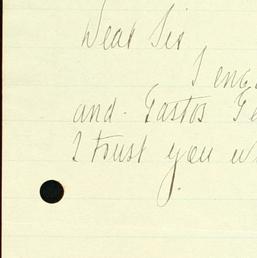 Dear Sir
I enc
and. Gastos Ge
I trust you w